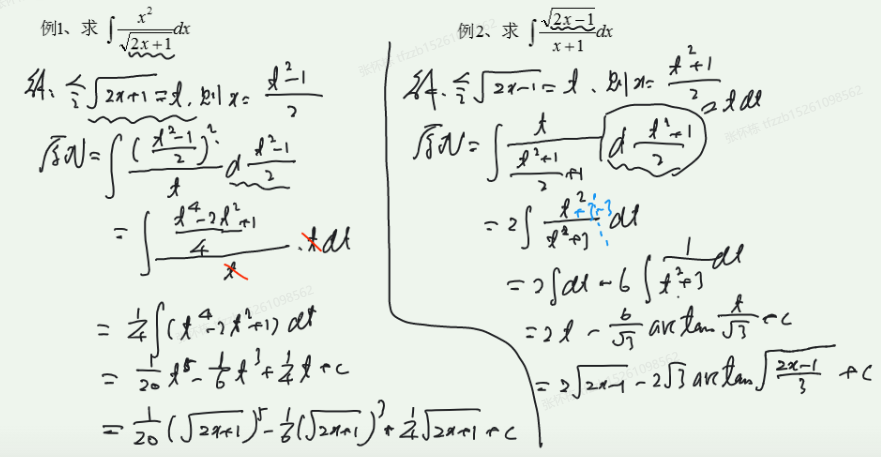 例1、求 ∫ x²/√(2x+1) dx
解: 令√(2x+1)=t, 则x=(t²-1)/2
原式=∫ ((t²-1)/2)²/t d (t²-1)/2
=∫ ((t⁴-2t²+1)/4)/t · t dt
=1/4∫(t⁴-2t²+1) dt
=1/20 t⁵-1/6 t³+1/4 t+C
=1/20(√(2x+1))⁵-1/6(√(2x+1))³+1/4√(2x+1)+C
例2、求 ∫ √(2x-1)/(x+1) dx
解: 令√(2x-1)=t, 则x=(t²+1)/2
原式=∫ t/((t²+1)/2+1) d (t²+1)/2 t dt
=2∫ (t²+3-3)/(t²+3) dt
=2∫dt-6∫ 1/(t²+3) dt
=2t-6/√3 arctan t/√3+C
=2√(2x-1)-2√3 arctan√((2x-1)/3)+C
张怀栋 tfzzb15261098562